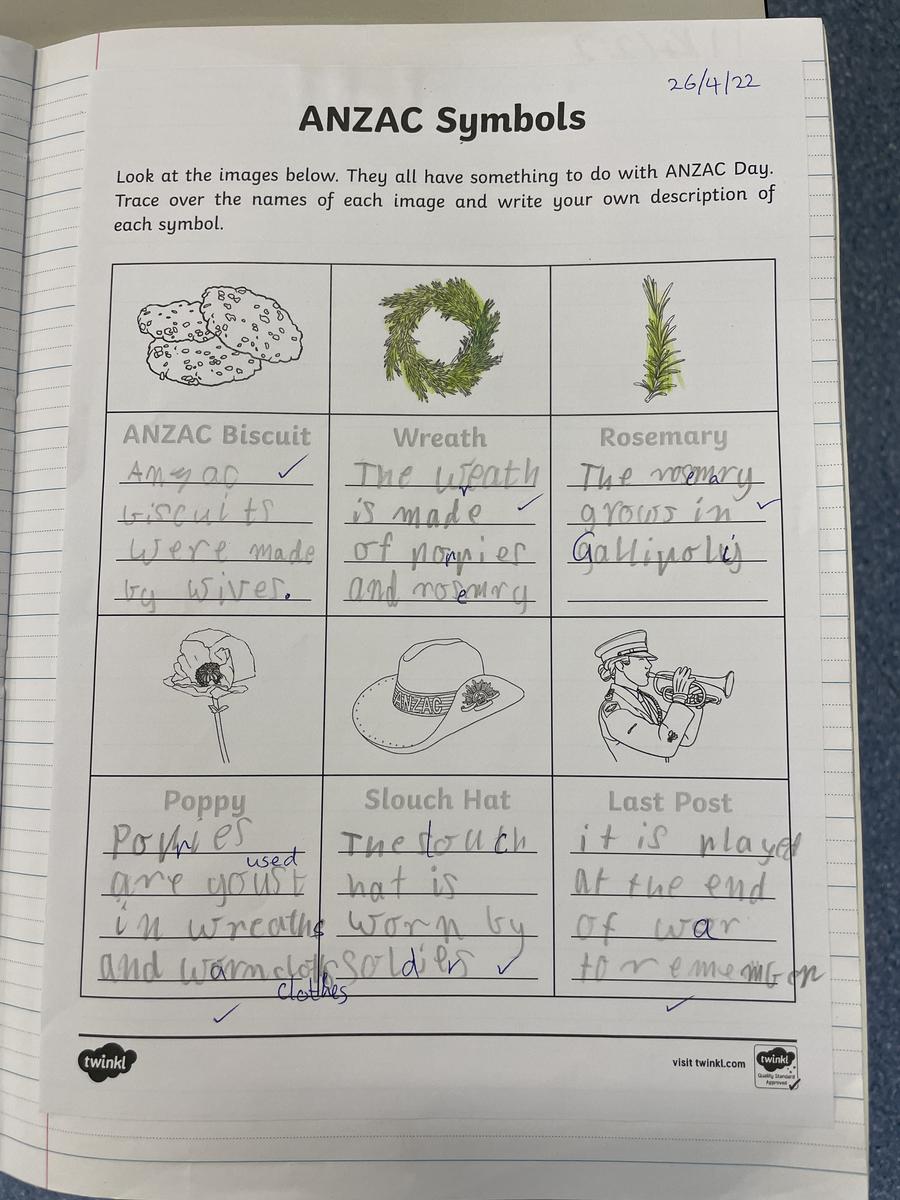 26/4/22
ANZAC Symbols
Look at the images below. They all have something to do with ANZAC Day.
Trace over the names of each image and write your own description of
each symbol.
ANZAC Biscuit
Anzac
biscuits
were made
by wives.
Wreath
The wreath
is made
of poppies
and rosemry
Rosemary
The rosemary
grows in
Gallipoli
ANZAC
Poppy
Poppies
used
are youst
in wreaths
and warm
clothes
Slouch Hat
The slouch
hat is
worn by
soldiers
Last Post
it is played
at the end
of war
to rememember
twinkl
visit twinkl.com
twinkl
Quality Standard
Approved